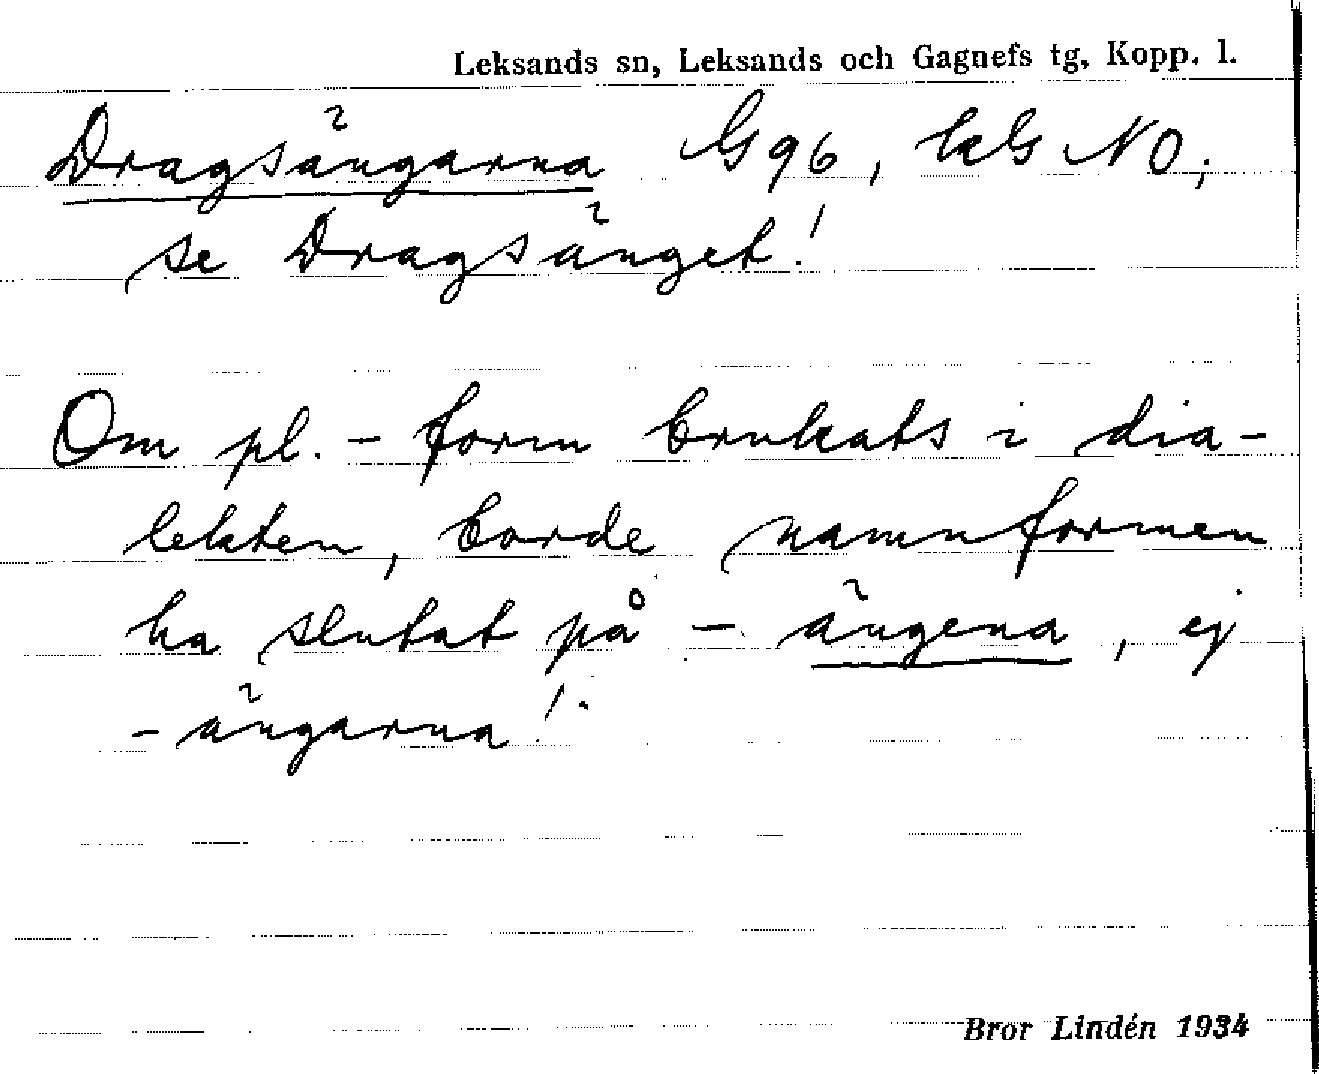 Leksands sn, Leksands och Gagnefs tg, Kopp. l.
Dragsängarna G96, lekG NO;
se Dragsänget!
Om pl. - form brukats i dia-
lekten, borde namnformen
ha slutat på - ängena, ej
- ängarna!
Bror Lindén 1934